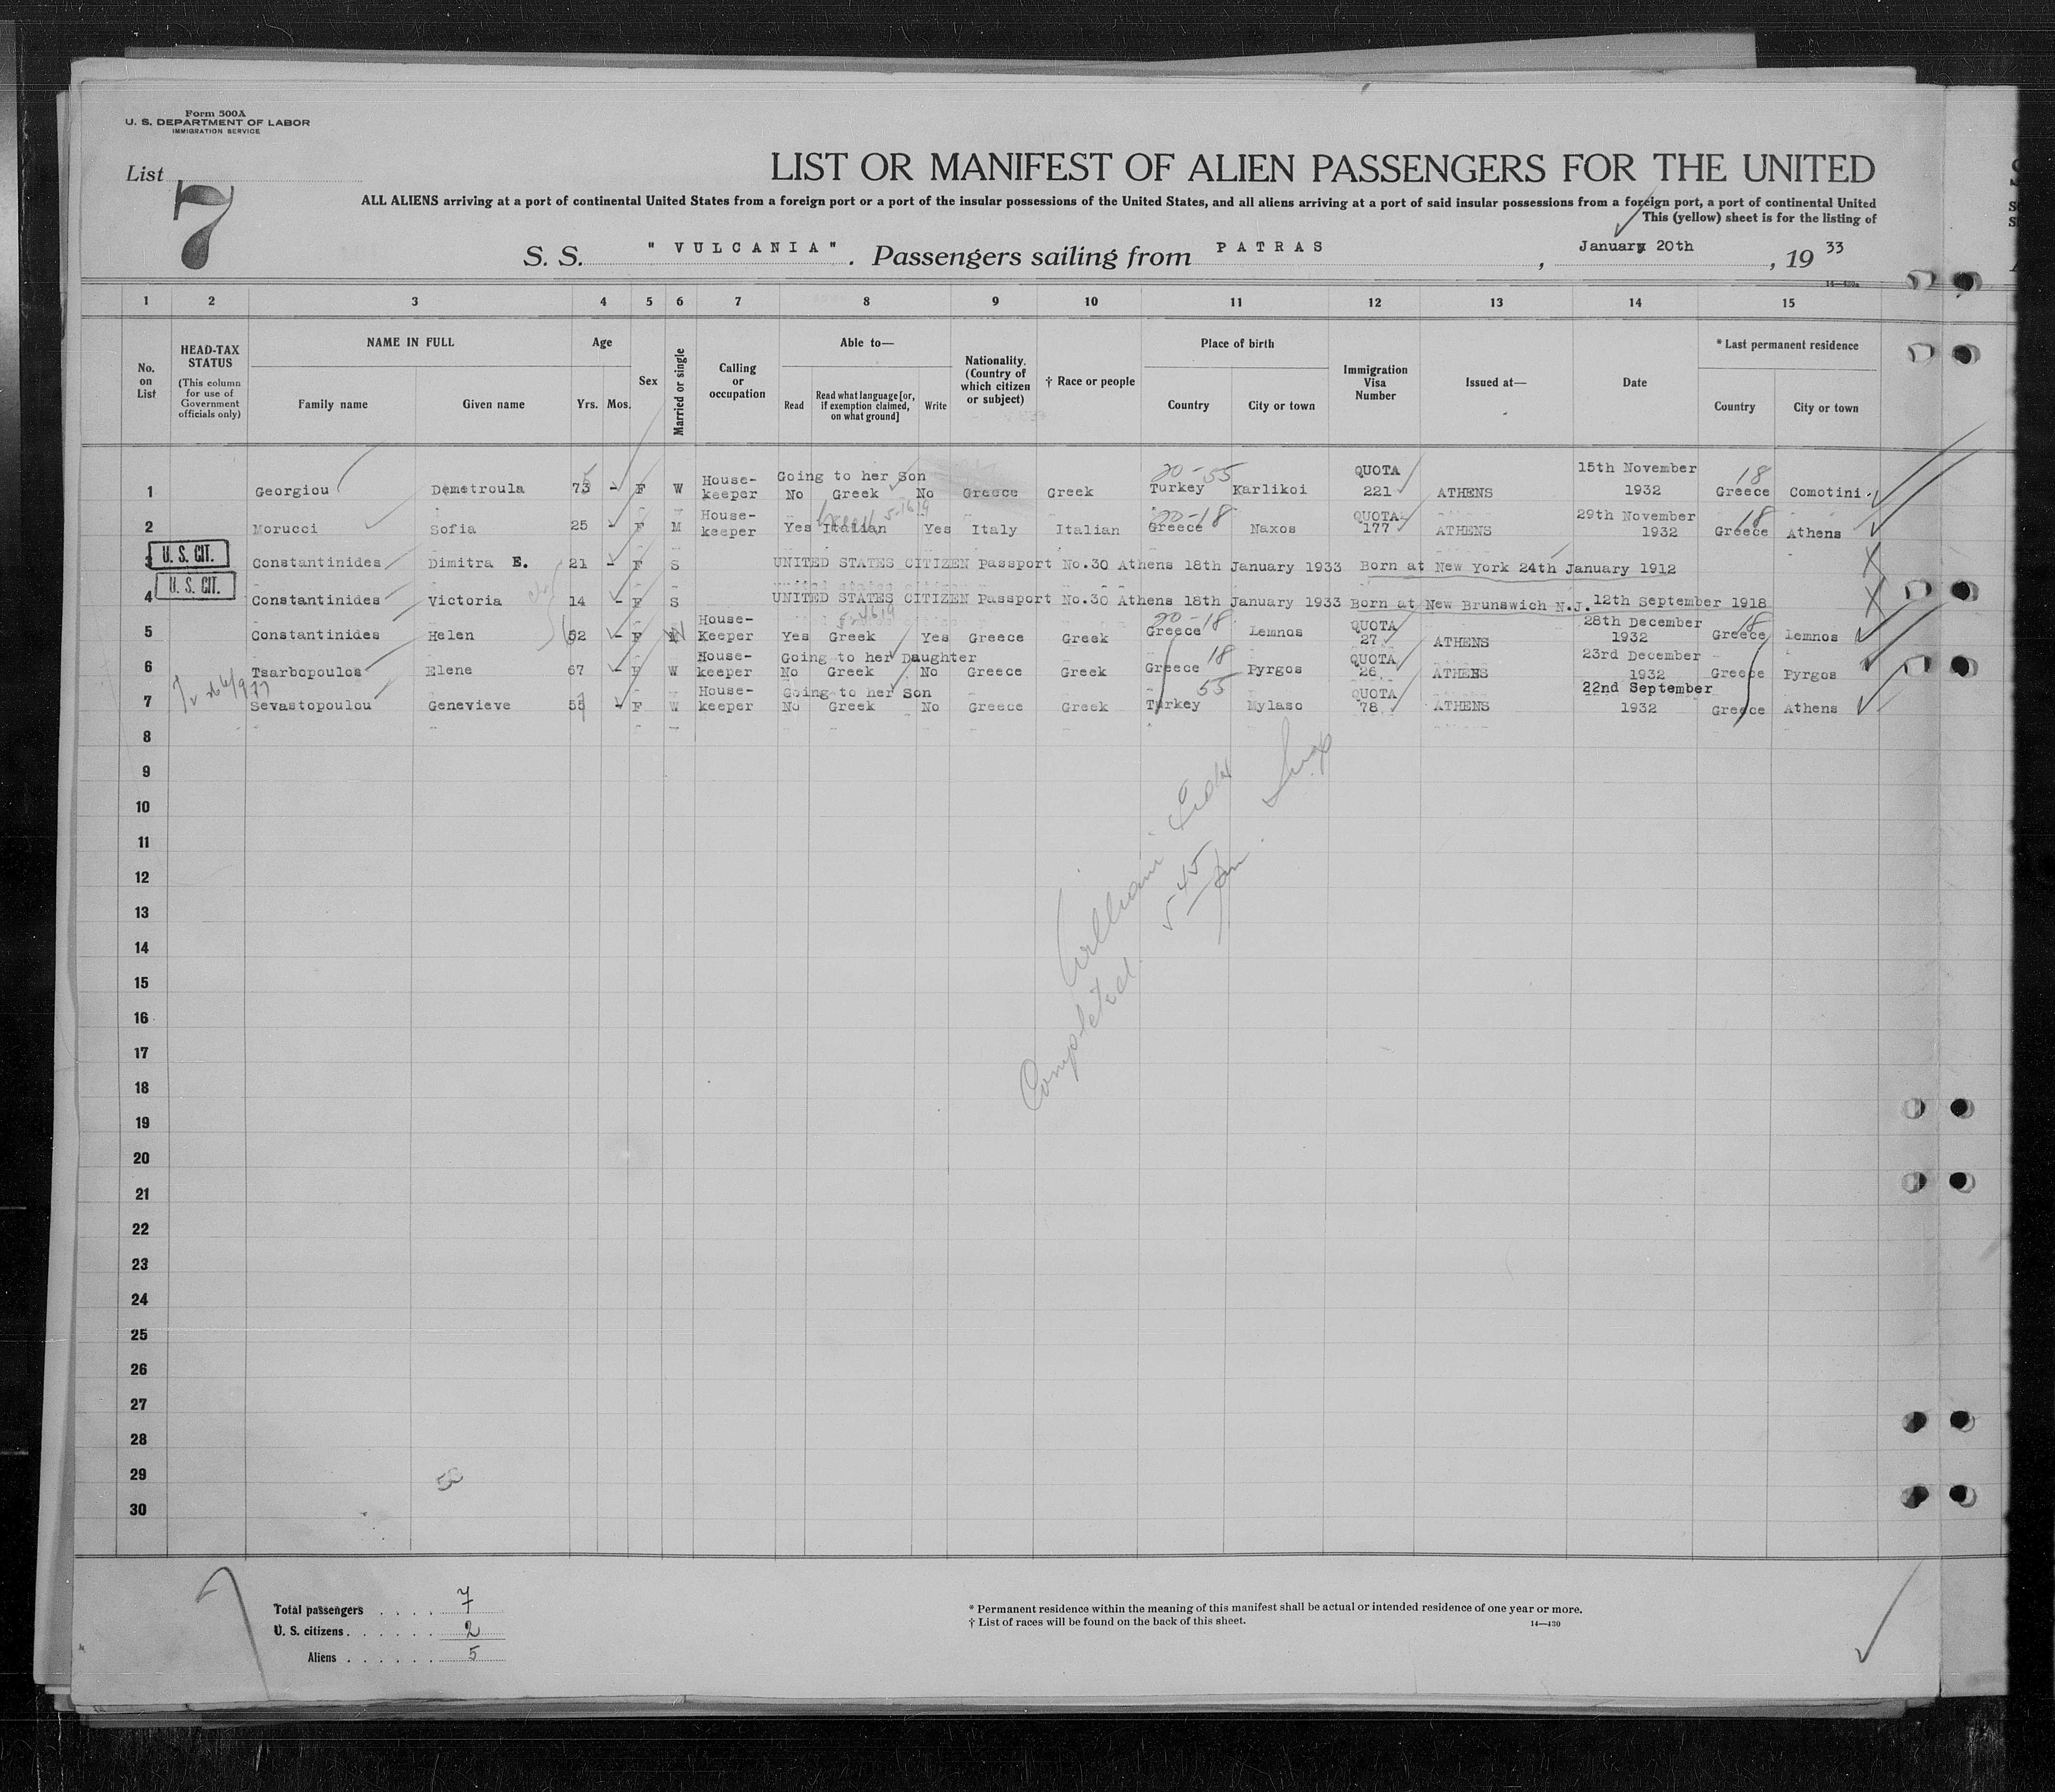 Form 500A
U. S. DEPARTMENT OF LABOR
IMMIGRATION SERVICE
List 7
LIST OR MANIFEST OF ALIEN PASSENGERS FOR THE UNITED
ALL ALIENS arriving at a port of continental United States from a foreign port or a port of the insular possessions of the United States, and all aliens arriving at a port of said insular possessions from a foreign port, a port of continental United
This (yellow) sheet is for the listing of
S. S. "VULCANIA". Passengers sailing from PATRAS, January 20th, 19 33
14—430a
1 2 3 4 5 6 7 8 9 10 11 12 13 14 15
No. on List
HEAD-TAX STATUS
(This column for use of Government officials only)
NAME IN FULL
Family name Given name
Age
Yrs. Mos.
Sex
Married or single
Calling or occupation
Able to—
Read
Read what language [or, if exemption claimed, on what ground]
Write
Nationality. (Country of which citizen or subject)
† Race or people
Place of birth
Country City or town
Immigration Visa Number
Issued at—
Date
* Last permanent residence
Country City or town
20-55 18
Going to her Son QUOTA 15th November
1 Georgiou Demetroula 73 - F W House-keeper No Greek No Greece Greek Turkey Karlikoi 221 ATHENS 1932 Greece Comotini.
20-18 18
2 Morucci Sofia 25 - F M House-keeper Yes Italian Yes Italy Italian Greece Naxos QUOTA 177 ATHENS 29th November 1932 Greece Athens
U. S. CIT.
3 Constantinides Dimitra E. 21 - F S UNITED STATES CITIZEN Passport No.30 Athens 18th January 1933 Born at New York 24th January 1912
U. S. CIT.
4 Constantinides Victoria 14 - F S UNITED STATES CITIZEN Passport No.30 Athens 18th January 1933 Born at New Brunswich N.J. 12th September 1918
20-18 18
5 Constantinides Helen 52 - F House-Keeper Yes Greek Yes Greece Greek Greece Lemnos QUOTA 27 ATHENS 28th December 1932 Greece Lemnos
18
Going to her Daughter
6 Tsarbopoulos Elene 67 - F W House-keeper No Greek No Greece Greek Greece Pyrgos QUOTA 26 ATHENS 23rd December 1932 Greece Pyrgos
55
Going to her Son
7 Sevastopoulou Genevieve 55 - F W House-keeper No Greek No Greece Greek Turkey Mylaso QUOTA 78 ATHENS 22nd September 1932 Greece Athens
8
9
10
11
12
13
14
15
16
17
18
19
20
21
22
23
24
25
26
27
28
29
30
William
Completed 5 45 pm
Total passengers . . . . 7
U. S. citizens . . . . . . 2
Aliens . . . . . . 5
* Permanent residence within the meaning of this manifest shall be actual or intended residence of one year or more.
† List of races will be found on the back of this sheet.
14—430